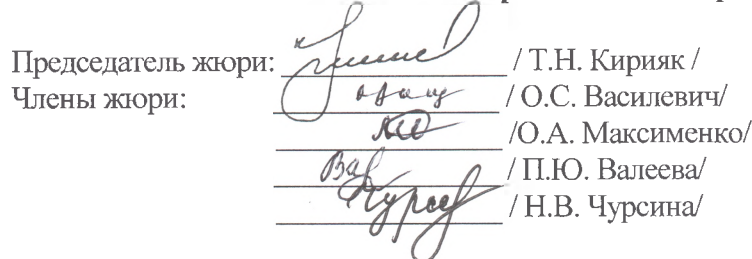 Председатель жюри: / Т.Н. Кирияк /
Члены жюри: / О.С. Василевич/
/О.А. Максименко/
/ П.Ю. Валеева/
/ Н.В. Чурсина/